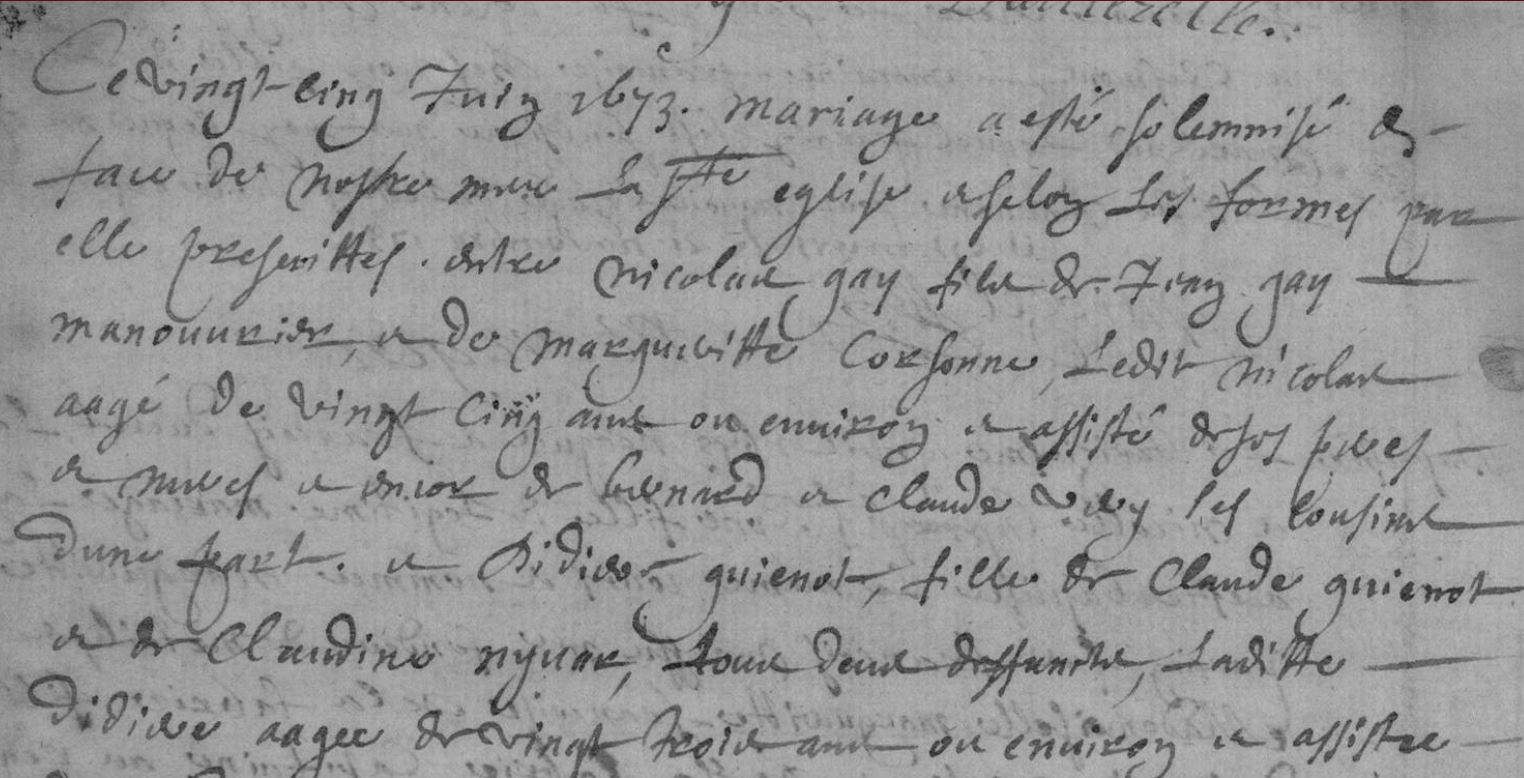 Ce vingt-cinq Juin 1673. mariage a esté solemnisé en
face de nostre mere La Ste eglise et selon Les formes par
elle prescrittes. entre nicolas gay fils de Jean gay
manouurier, et de margueritte Corsonne, Ledit nicolas
aagé de vingt cinq ans ou enuiron et assisté de ses peres
et meres et encor de bernard et claude very ses cousins
dune part. et Didiere guienot, fille de Claude guienot
et de Claudine, tous deux deffuncts, Laditte
Didiere aagee de vingt trois ans ou enuiron et assistee